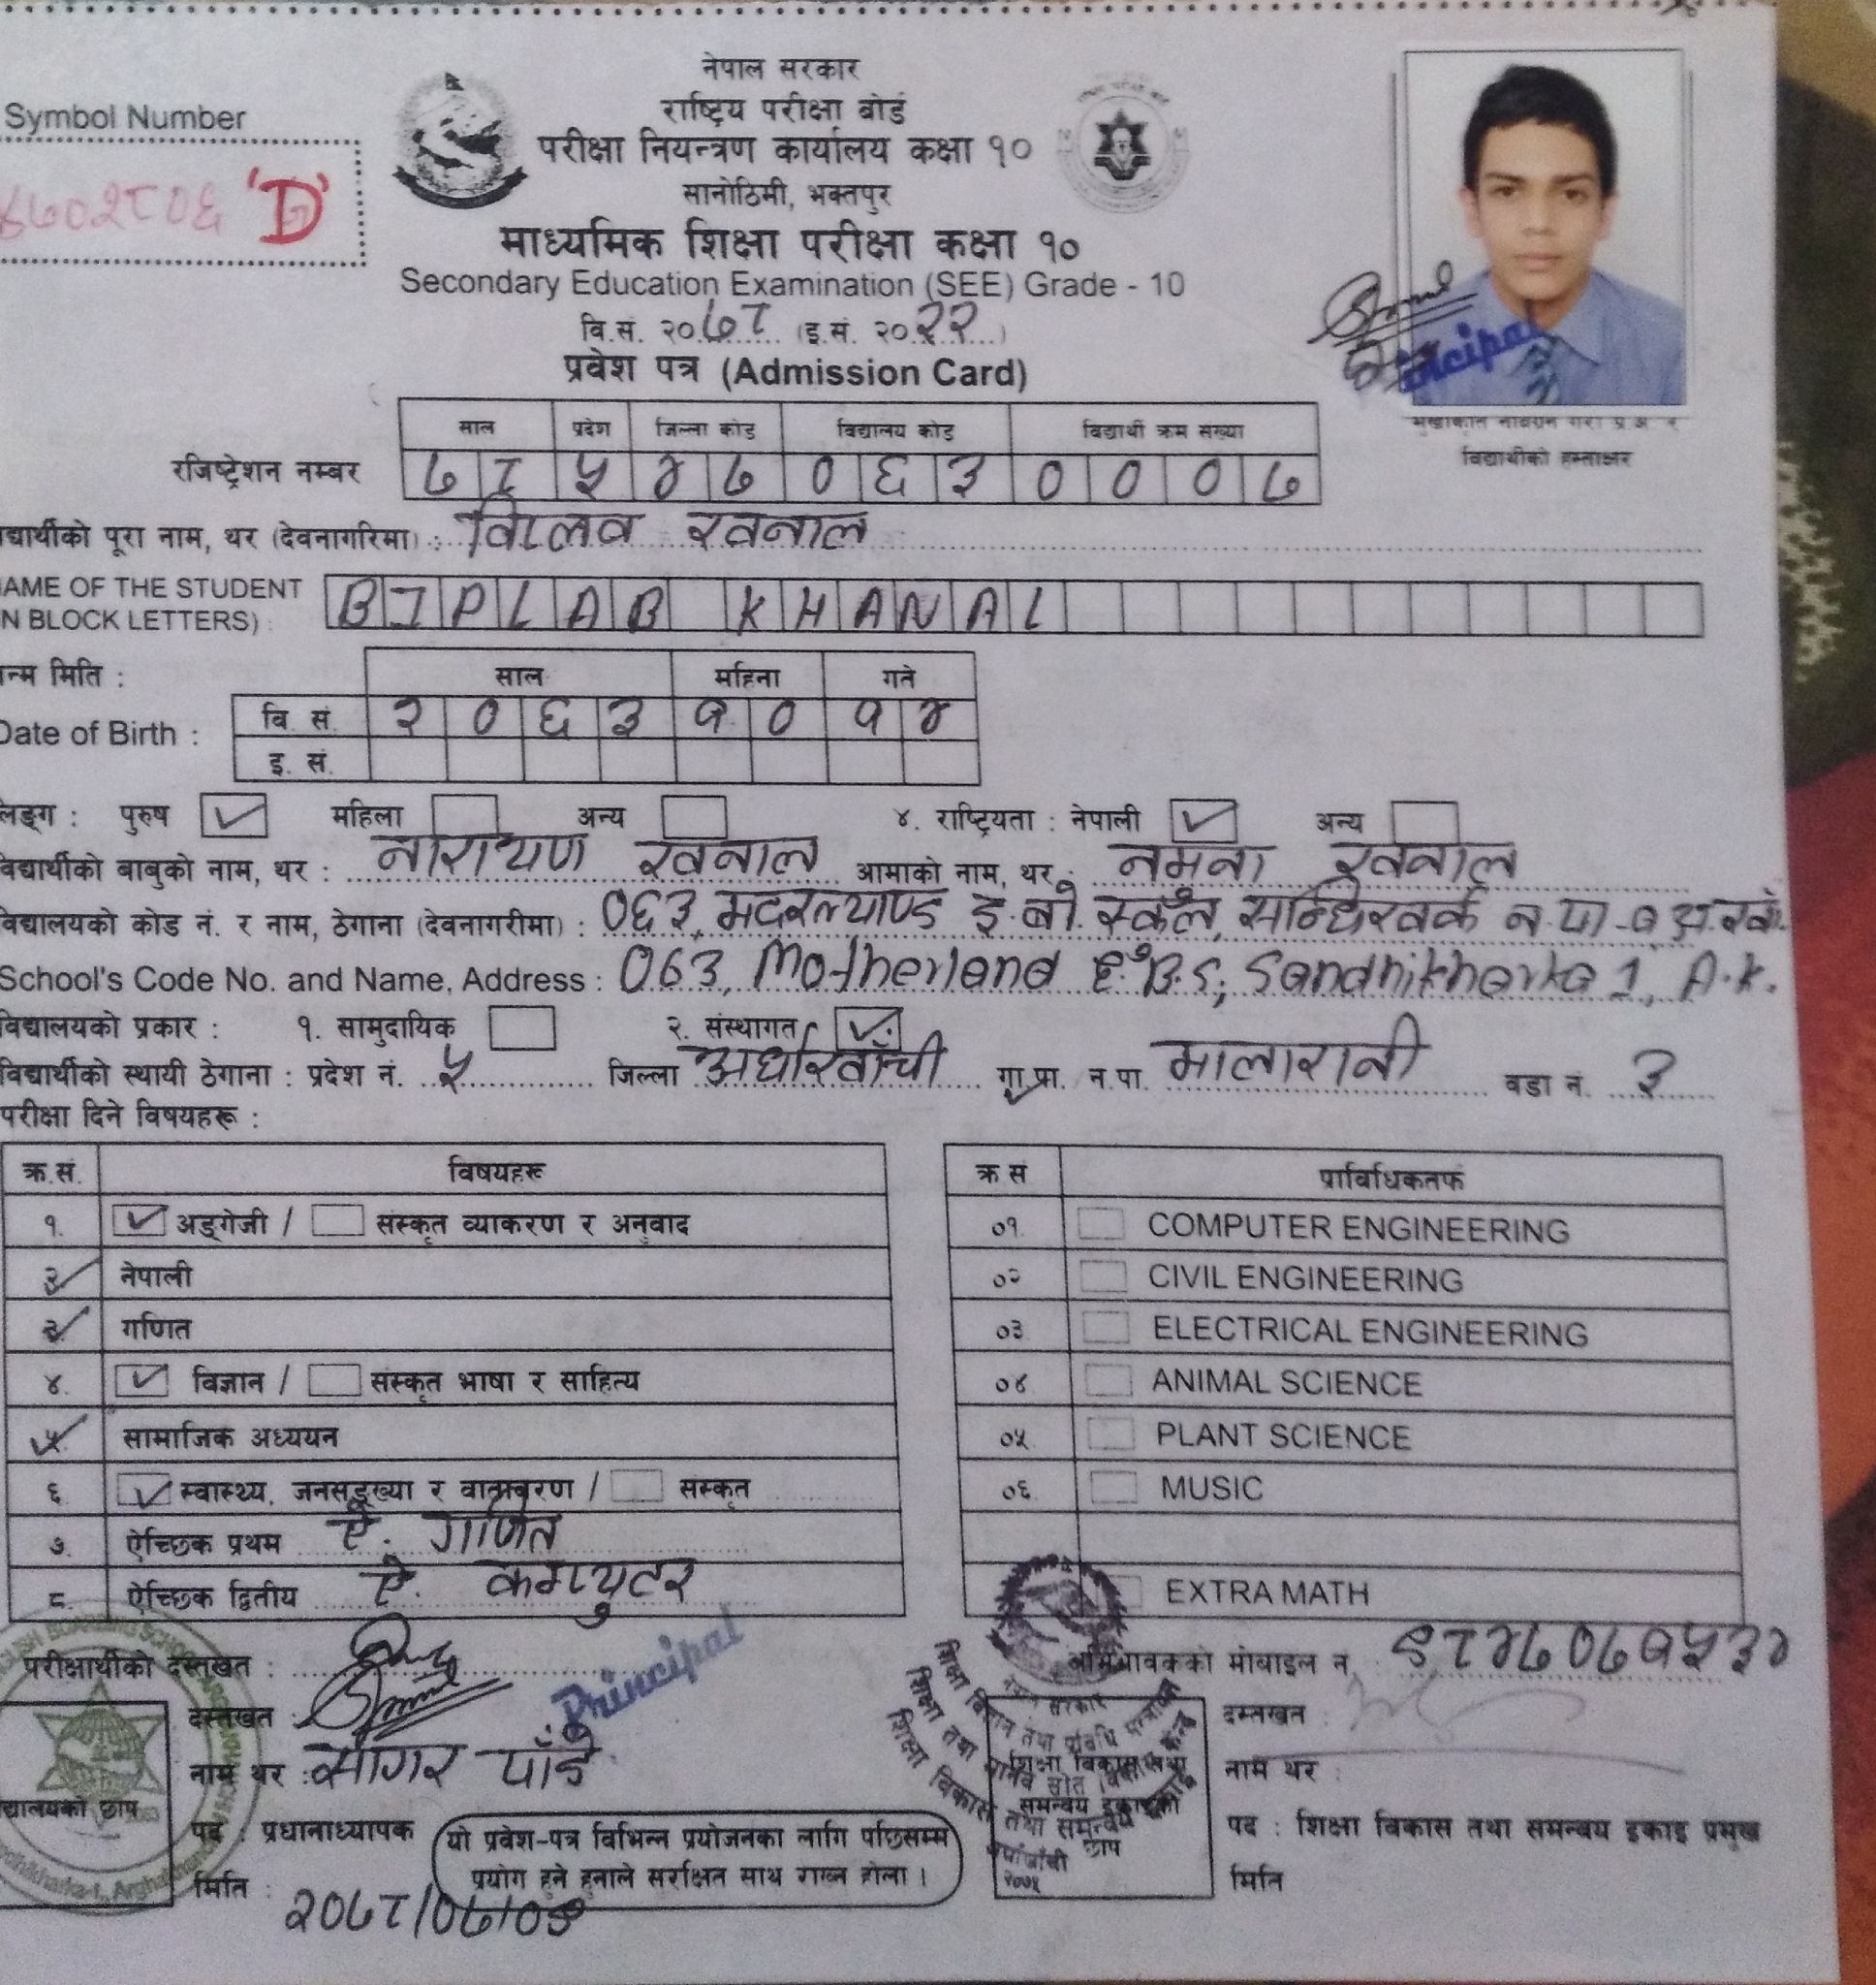 नेपाल सरकार
राष्ट्रिय परीक्षा बोर्ड
परीक्षा नियन्त्रण कार्यालय कक्षा १०
सानोठिमी, भक्तपुर
Symbol Number
०२८०६ 'D'
माध्यमिक शिक्षा परीक्षा कक्षा १०
Secondary Education Examination (SEE) Grade - 10
वि.सं. २०७८ (इ.सं. २०२२)
प्रवेश पत्र (Admission Card)
साल प्रदेश जिल्ला कोड विद्यालय कोड विद्यार्थी क्रम संख्या
रजिष्ट्रेशन नम्बर ७ ८ ५ ४ ७ ० ६ ३ ० ० ० ७
विद्यार्थीको हस्ताक्षर
द्यार्थीको पूरा नाम, थर (देवनागरिमा) : विप्लव खनाल
AME OF THE STUDENT
N BLOCK LETTERS) : BIPLAB KHANAL
न्म मिति : साल महिना गते
Date of Birth : वि सं. २ ० ६ ३ १ ० १ ४
इ. सं.
लिङ्ग : पुरुष ✓ महिला अन्य ४. राष्ट्रियता : नेपाली ✓ अन्य
विद्यार्थीको बाबुको नाम, थर : नारायण खनाल आमाको नाम, थर : नमुना खनाल
विद्यालयको कोड नं. र नाम, ठेगाना (देवनागरीमा) : ०६३, मदरल्याण्ड इ. बो. स्कूल, सन्धिखर्क न.पा-१ अ.खाँ.
School's Code No. and Name, Address : 063, Motherland E.B.S, Sandhikharka 1, A.K.
विद्यालयको प्रकार : १. सामुदायिक २. संस्थागत ✓
विद्यार्थीको स्थायी ठेगाना : प्रदेश नं. ५ जिल्ला अर्घाखाँची गा.पा. न.पा. मालारानी वडा नं. ३
परीक्षा दिने विषयहरू :
क्र.सं. विषयहरू
१. ✓ अङ्ग्रेजी / संस्कृत व्याकरण र अनुवाद
२ ✓ नेपाली
३ ✓ गणित
४. ✓ विज्ञान / संस्कृत भाषा र साहित्य
५ ✓ सामाजिक अध्ययन
६ ✓ स्वास्थ्य, जनसङ्ख्या र वातावरण / संस्कृत
७. ऐच्छिक प्रथम ऐ. गणित
८. ऐच्छिक द्वितीय ऐ. कम्प्युटर
क्र स प्राविधिकतर्फ
०१ COMPUTER ENGINEERING
०२ CIVIL ENGINEERING
०३ ELECTRICAL ENGINEERING
०४ ANIMAL SCIENCE
०५ PLANT SCIENCE
०६ MUSIC
EXTRA MATH
परीक्षार्थीको दस्तखत :
दस्तखत : Principal
नाम थर : सागर पाँडे
द्यालयको छाप
पद : प्रधानाध्यापक
मिति : २०७८/०७/०७
यो प्रवेश-पत्र विभिन्न प्रयोजनका लागि पछिसम्म
प्रयोग हुने हुनाले सुरक्षित साथ राख्नु होला ।
अभिभावकको मोबाइल नं. ९८४७०७१५३४
दस्तखत :
शिक्षा विकास तथा
समन्वय इकाइको
छाप
नाम थर :
पद : शिक्षा विकास तथा समन्वय इकाइ प्रमुख
मिति